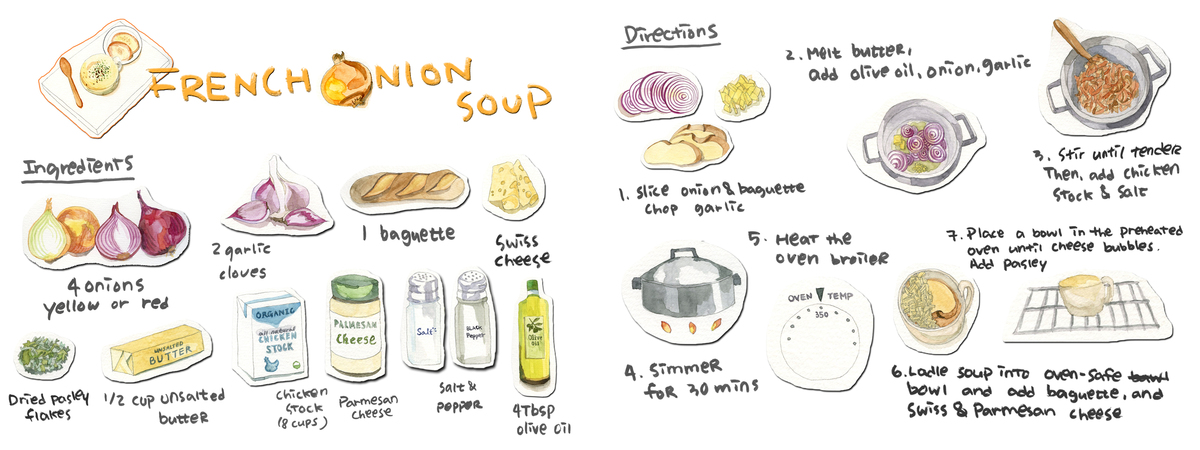 FRENCH ONION
SOUP
Ingredients
4 onions
yellow or red
2 garlic
cloves
1 baguette
Swiss
cheese
Dried pasley
flakes
UNSALTED
BUTTER
1/2 cup unsalted
butter
ORGANIC
all natural
CHICKEN
STOCK
Chicken
Stock
(8 cups)
PALMESAN
Cheese
Parmesan
cheese
Salt
BLACK
Pepper
Salt &
pepper
OLIVE
OIL
4Tbsp
olive oil
Directions
1. Slice onion & baguette
chop garlic
2. Melt butter,
add olive oil, onion, garlic
3. Stir until tender
Then, add chicken
Stock & Salt
4. Simmer
for 30 mins
5. Heat the
oven broiler
OVEN TEMP
350
6. Ladle soup into oven-safe bowl
bowl and add baguette, and
Swiss & Parmesan cheese
7. Place a bowl in the preheated
oven until cheese bubbles.
Add Pasley